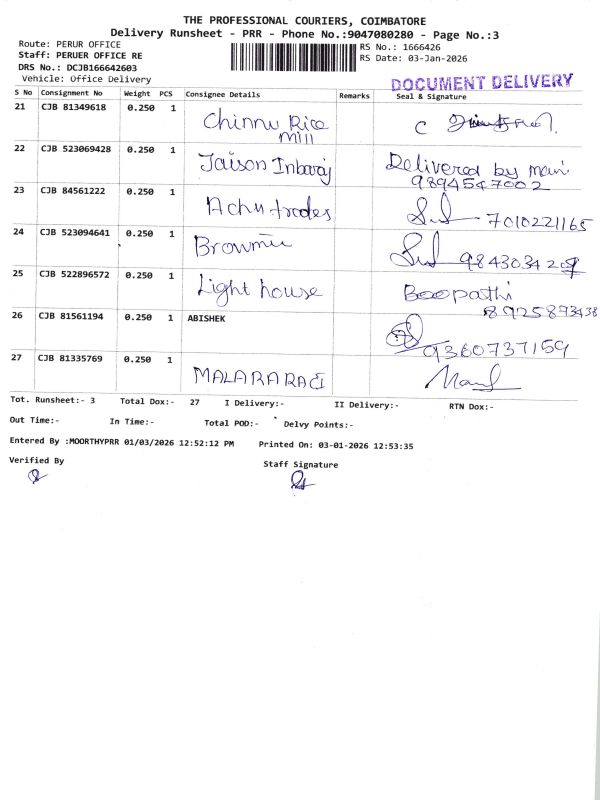 THE PROFESSIONAL COURIERS, COIMBATORE
Delivery Runsheet - PRR - Phone No.:9047080280 - Page No.:3
Route: PERUR OFFICE
Staff: PERUER OFFICE RE
DRS No.: DCJB166642603
Vehicle: Office Delivery
RS No.: 1666426
RS Date: 03-Jan-2026
DOCUMENT DELIVERY
S No Consignment No Weight PCS Consignee Details Remarks Seal & Signature
21 CJB 81349618 0.250 1 Chinnu Rice
Mill
22 CJB 523069428 0.250 1 Jaison Inbaraj Delivered by main
9894547002
23 CJB 84561222 0.250 1 Achu trades 7010221165
24 CJB 523094641 0.250 1
25 CJB 522896572 0.250 1 Light house Boopathi
8925893438
26 CJB 81561194 0.250 1 ABISHEK
9360737159
27 CJB 81335769 0.250 1
Tot. Runsheet:- 3 Total Dox:- 27 I Delivery:- II Delivery:- RTN Dox:-
Out Time:- In Time:- Total POD:- Delvy Points:-
Entered By :MOORTHYPRR 01/03/2026 12:52:12 PM Printed On: 03-01-2026 12:53:35
Verified By
Staff Signature